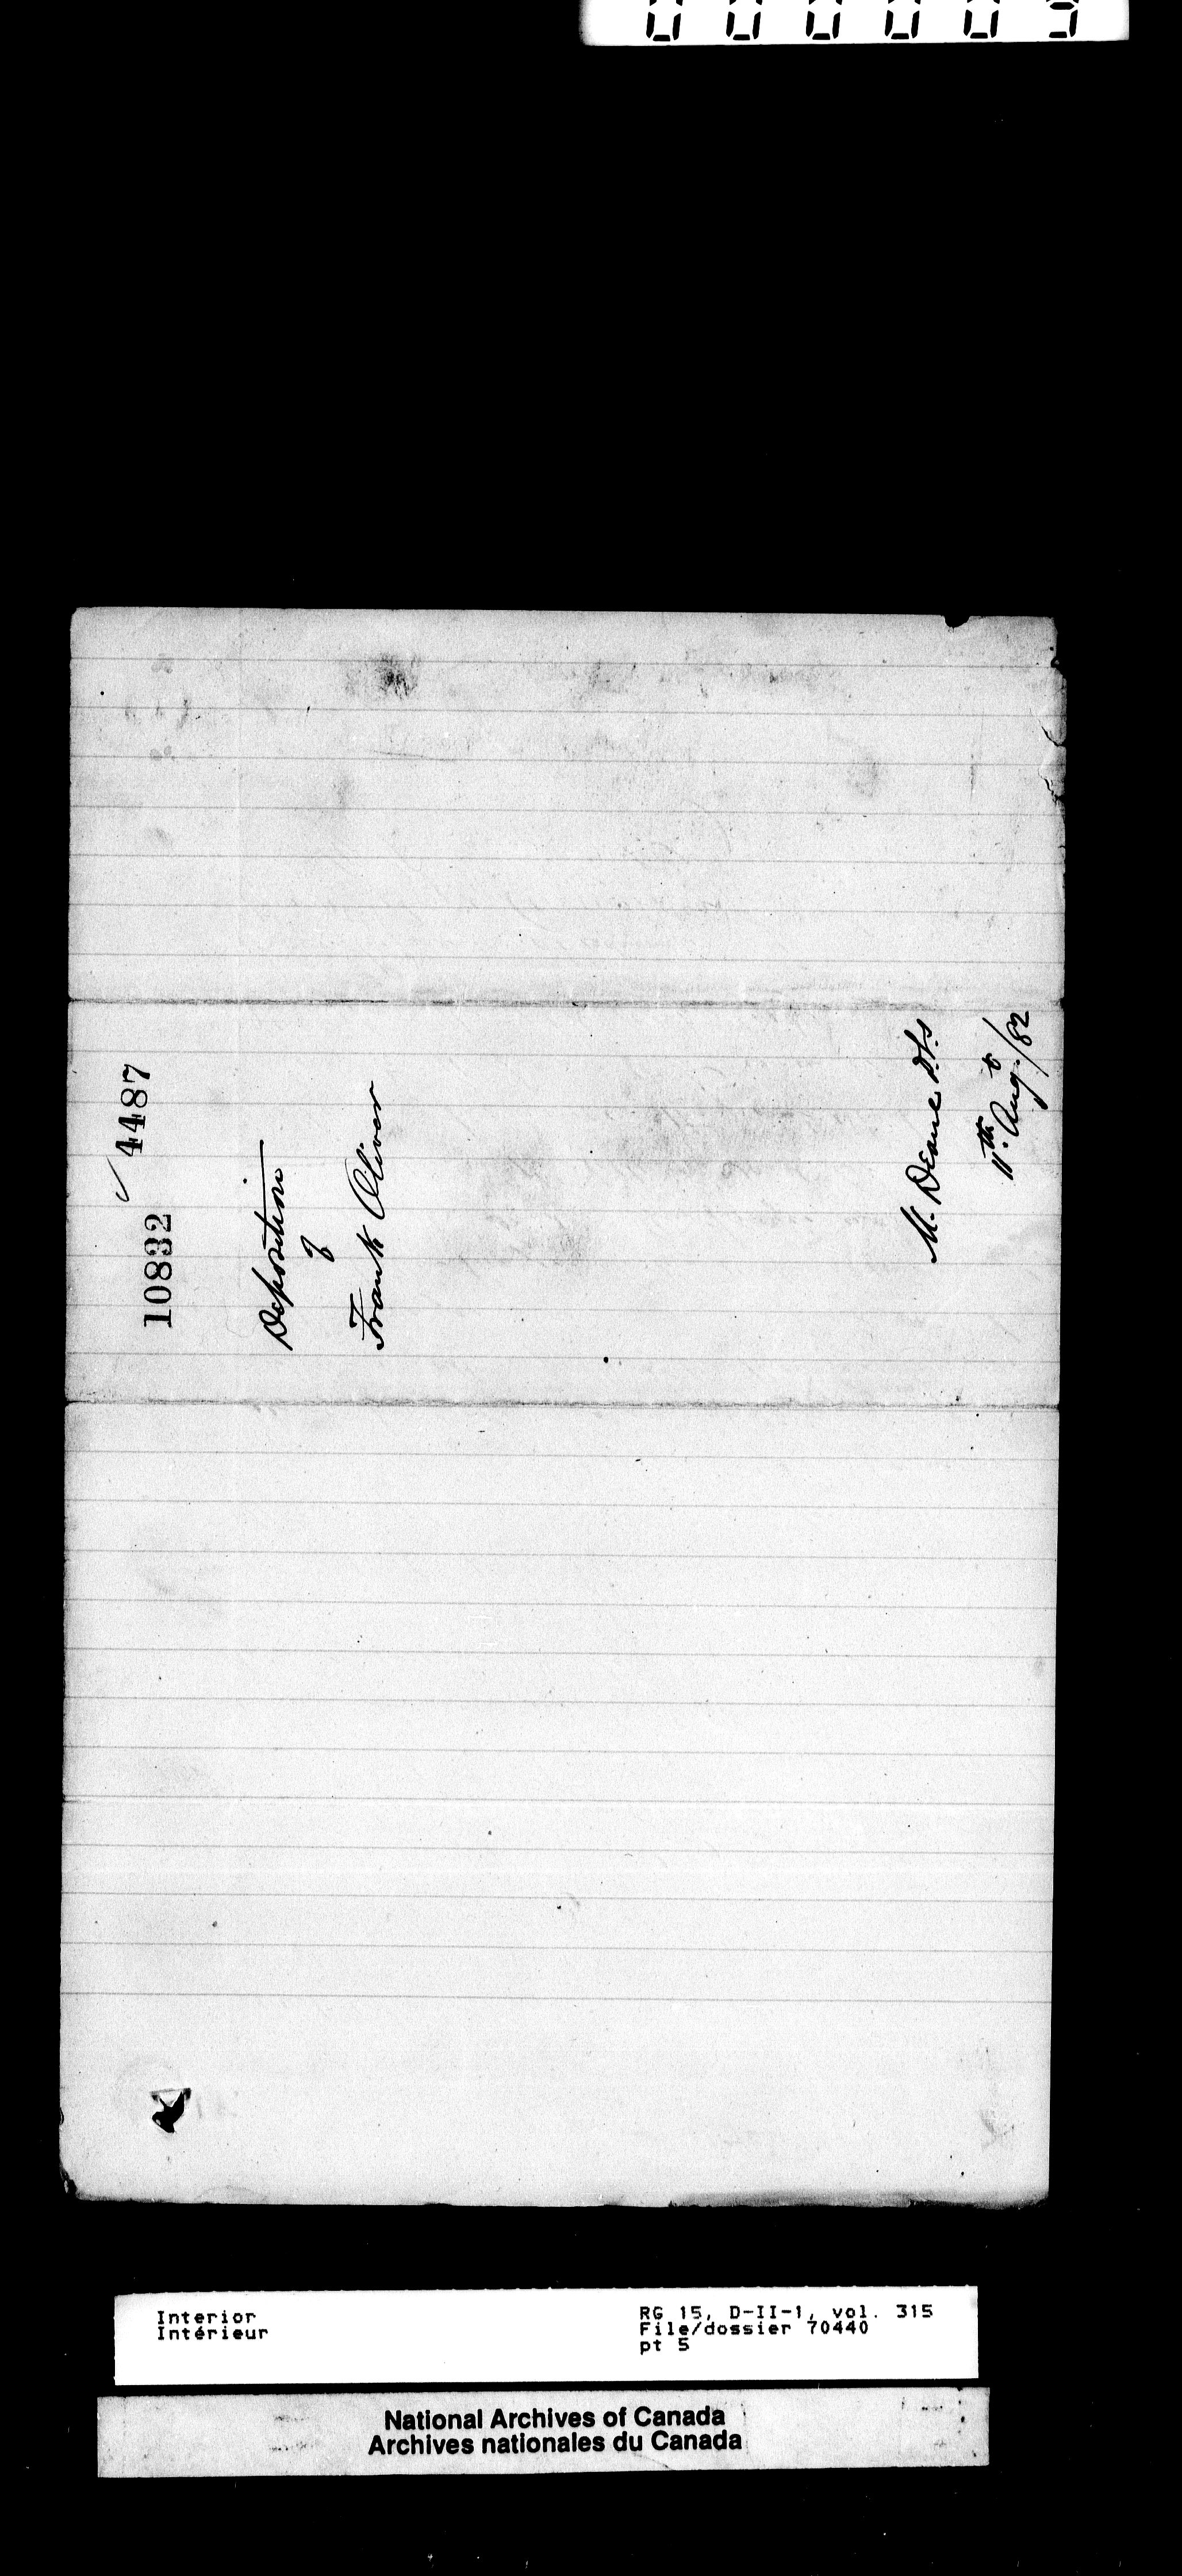 10832 ✓ 4487
Deposition
of
Frank Oliver
M. Deane D.L.S
11th Augt/82
Interior
Intérieur
RG 15, D-II-1, vol. 315
File/dossier 70440
pt 5
National Archives of Canada
Archives nationales du Canada